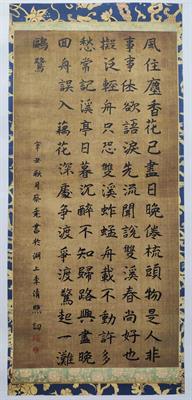 風住塵香花已盡日晚倦梳頭物是人非
事事休欲語淚先流聞說雙溪春尚好也
擬泛輕舟只恐雙溪蚱蜢舟載不動許多
愁常記溪亭日暮沉醉不知歸路興盡晚
回舟誤入藕花深處爭渡爭渡驚起一灘
鷗鷺
辛丑秋月蔡書於湖上李清照詞